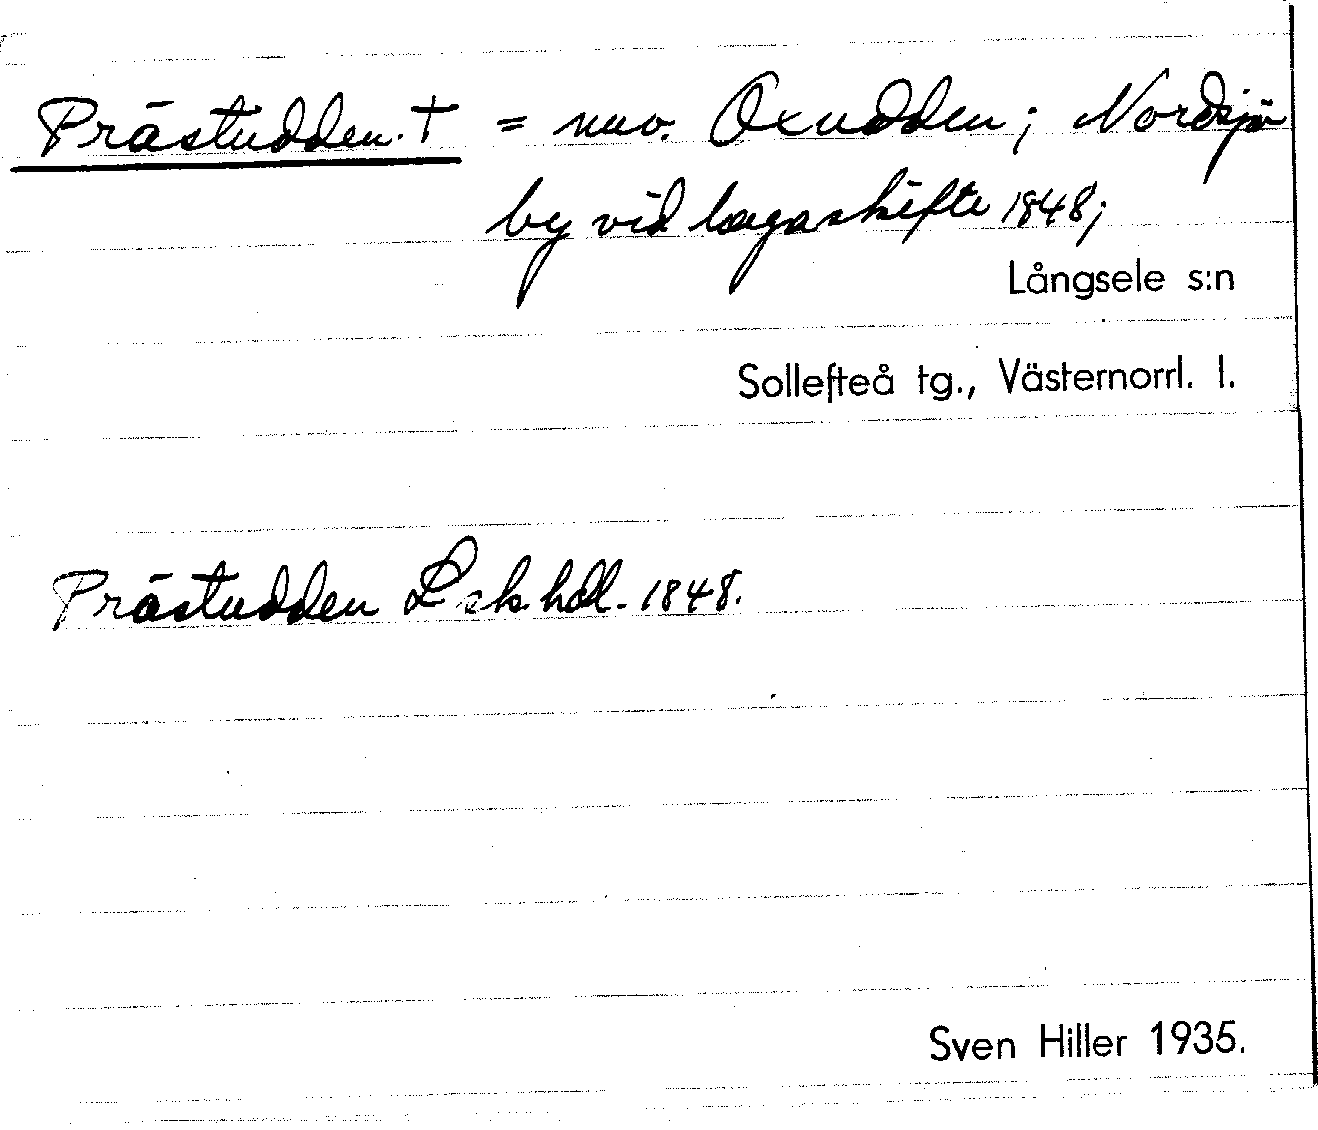 Prästudden. † = nuv. Oxudden; Nordsjö
by vid lagaskifte 1848;
Långsele s:n
Sollefteå tg., Västernorrl. l.
Prästudden L sk. hdl. 1848.
Sven Hiller 1935.